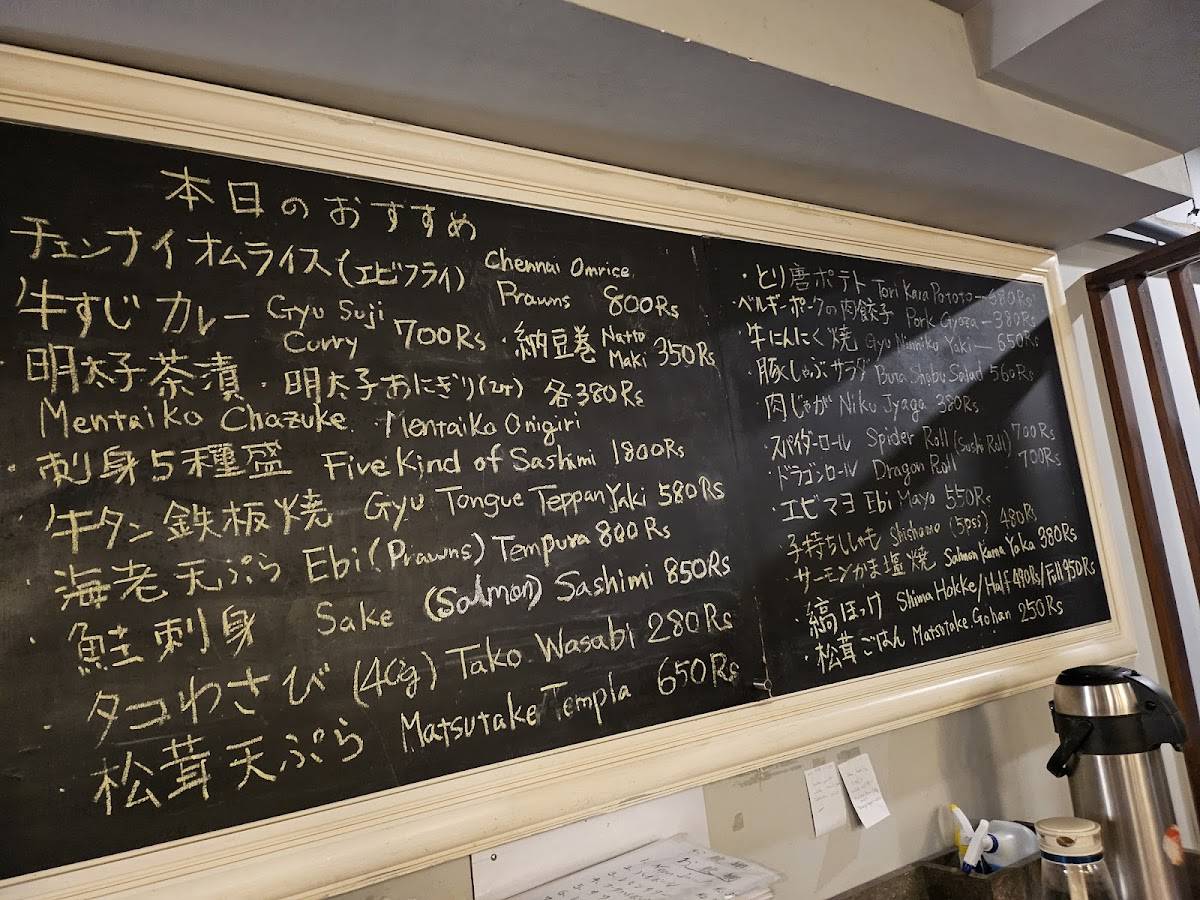 本日のおすすめ
チェンナイオムライス(エビフライ) Chennai Omrice Prawns 800Rs
牛すじカレー Gyu Suji Curry 700Rs ・納豆巻 Natto Maki 350Rs
・明太子茶漬・明太子おにぎり(2ケ) 各380Rs
Mentaiko Chazuke Mentaiko Onigiri
・刺身5種盛 Five Kind of Sashimi 1800Rs
・牛タン鉄板焼 Gyu Tongue TeppanYaki 580Rs
・海老天ぷら Ebi (Prawns) Tempura 800Rs
・鮭刺身 Sake (Salmon) Sashimi 850Rs
・タコわさび (40g) Tako Wasabi 280Rs
・松茸天ぷら Matsutake Templa 650Rs
・とり唐ポテト Tori Kara Pototo – 580Rs
・ベルギーポークの肉餃子 Pork Gyoza – 380Rs
・牛にんにく焼 Gyu Ninniku Yaki – 650Rs
・豚しゃぶサラダ Buta Shabu Salad 560Rs
・肉じゃが Niku Jyaga 380Rs
・スパイダーロール Spider Roll (Sush Roll) 700Rs
・ドラゴンロール Dragon Roll 700Rs
・エビマヨ Ebi Mayo 550Rs
・子持ちししゃも Shishamo (5psi) 480Rs
・サーモンかま塩焼 Salmon Kama Yaka 380Rs
・縞ほっけ Shima Hokke/Half 490Rs/Full 950Rs
・松茸ごはん Matsutake Gohan 250Rs